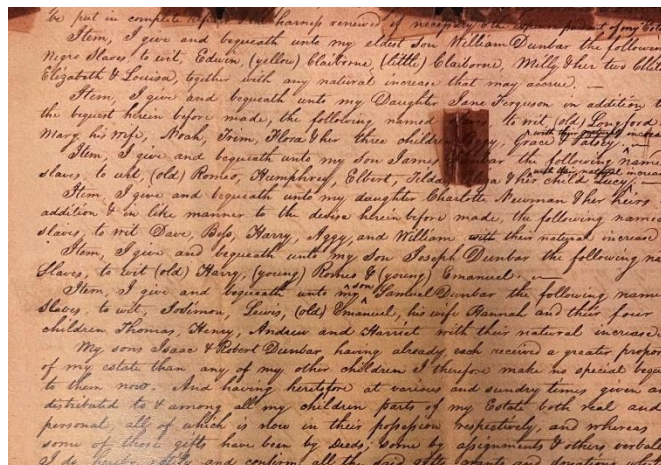 be put in complete repair and harness renewed if necessary & the expense part of my Esta
Item, I give and bequeath unto my eldest Son William Dunbar the followin
Negro Slaves, to wit, Edwin, (yellow) Claiborne, (little) Claiborne, Milly & her two Child
Elizabeth & Louisa, together with any natural increase that may accrue. —
Item, I give and bequeath unto my Daughter Jane Ferguson in addition to
the bequest herein before made, the following named to wit, (old) Longford
Mary, his wife, Noah, Trim, Flora & her three children Grace & Patsey
with their natural increa
Item, I give and bequeath unto my son James Dunbar the following name
slaves, to wit, (old) Romeo, Humphrey, Elbert, Tilda & her child Lucy
with their natural increas
Item, I give and bequeath unto my daughter Charlotte Newman & her heirs
addition & in like manner to the devise herein before made, the following name
slaves, to wit Dave, Harry, Aggy, and William with their natural increase
Item, I give and bequeath unto my son Joseph Dunbar the following na
Slaves, to wit (old) Harry, (young) Romeo & (young) Emanuel. —
Item, I give and bequeath unto my son Samuel Dunbar the following name
Slaves, to wit, Solimon, Lewis, (old) Emanuel, his wife Hannah and their four
children Thomas, Henry, Andrew and Harriet with their natural increase
My sons Isaac & Robert Dunbar, having already, each received a greater propor
of my estate than any of my other children I therefore make no special beque
to them now. And having heretofore at various and sundry times given an
distributed to & among all my children parts of my Estate both real and
personal, all of which is now in their possession respectively, and whereas
some of those gifts have been by Deeds: some by assignments & others verball
I do hereby ratify and confirm all the said gifts grants and